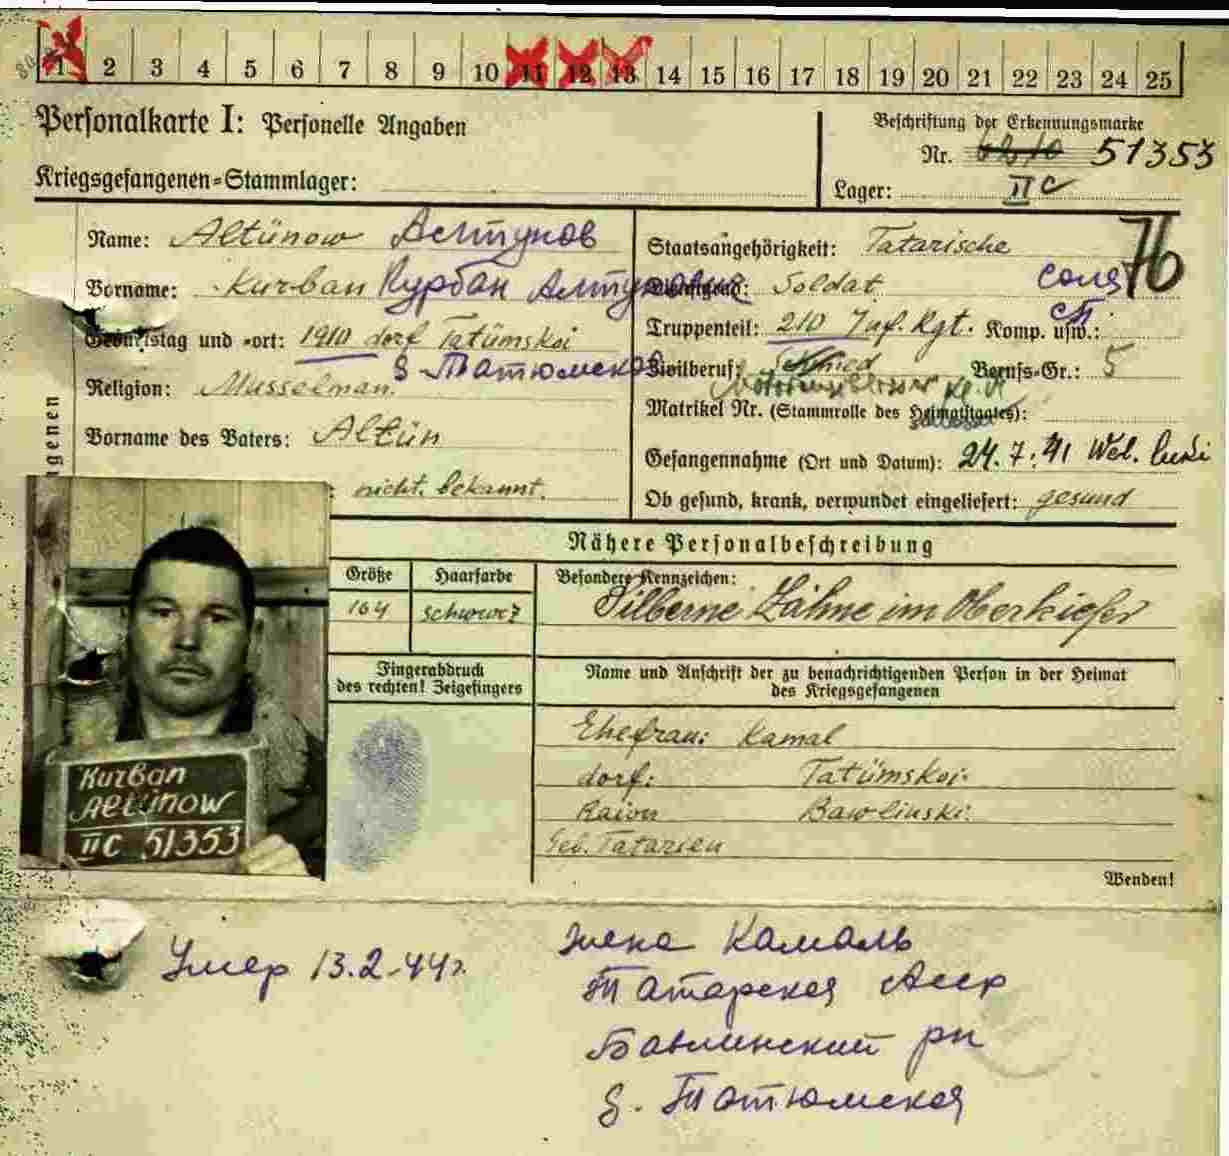 1 2 3 4 5 6 7 8 9 10 11 12 13 14 15 16 17 18 19 20 21 22 23 24 25
Personalkarte I: Personelle Angaben
Beschriftung der Erkennungsmarke
Nr. 51353
Kriegsgefangenen-Stammlager:
Lager: II C
Name: Altünow Алтунов
Vorname: Kurban Курбан
Geburtstag und -ort: 1910 dorf Tatümskoi
д Татюмская
Religion: Musselman.
Vorname des Vaters: Altün
genen
: nicht. bekannt.
Staatsangehörigkeit: Tatarische
76
Dienstgrad: Soldat
солд
Truppenteil: 210 Inf. Rgt. Komp. usw.:
Zivilberuf: Berufs-Gr.: 5
Matrikel Nr. (Stammrolle des Heimatstaates):
Gefangennahme (Ort und Datum): 24.7.41 Wel. Luki
Ob gesund, krank, verwundet eingeliefert: gesund
Nähere Personalbeschreibung
Größe Haarfarbe Besondere Kennzeichen:
164 schwarz Silberne Zähne im Oberkiefer
Fingerabdruck
des rechten! Zeigefingers
Name und Anschrift der zu benachrichtigenden Person in der Heimat
des Kriegsgefangenen
Ehefrau: Kamal
dorf: Tatümskoi.
Raion Bawlinski.
Geb. Tatarien
Wenden!
Kurban
Altünow
II C 51353
Умер 13.2.44г.
жена Камаль
Татарская Асср
Бавлинский рн
д. Татюмская